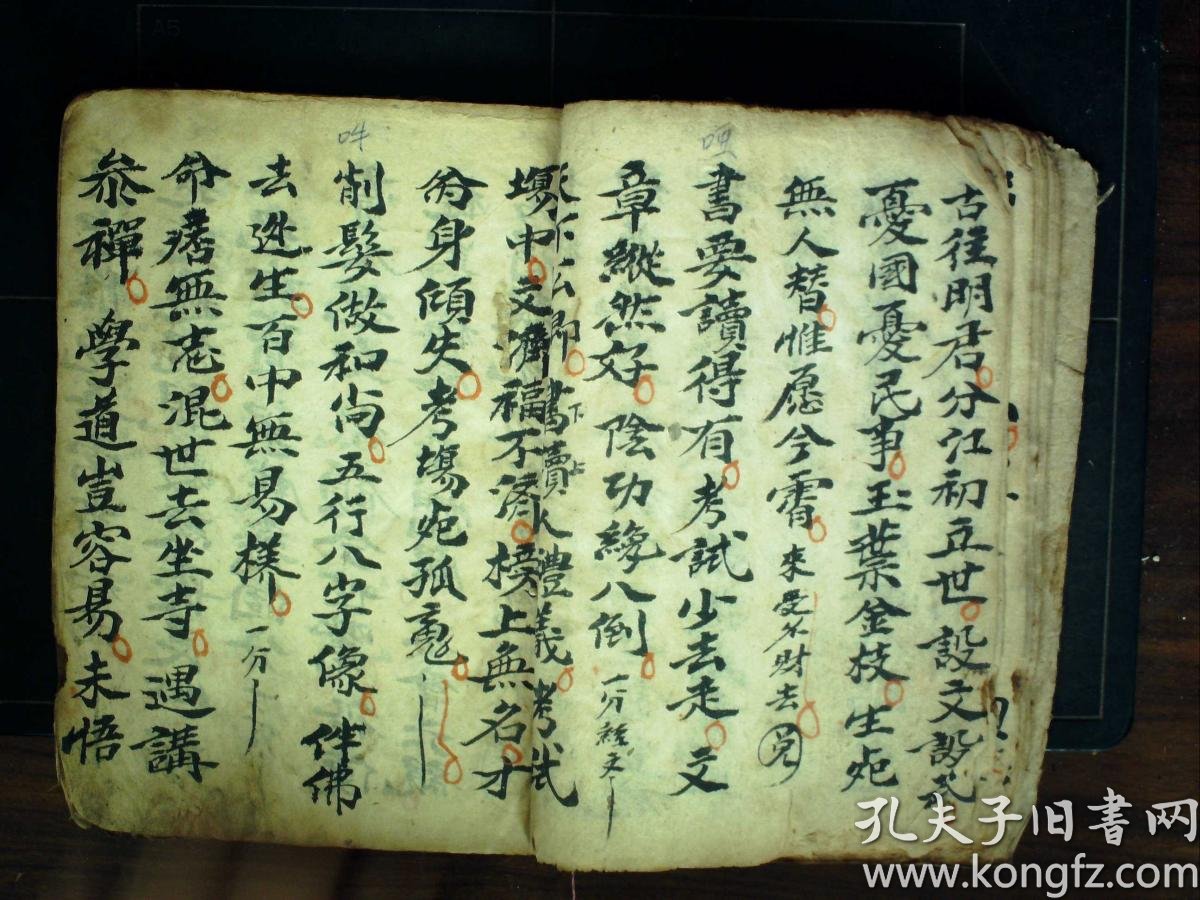 古往明君分江初立世設文設武
憂國憂民事玉葉金枝生死
無人替惟愿今霄來受分財去
書要讀得有考試少去走文
章縱然好陰功緣八倒一分經文
下上
公郎書讀人禮義考試
塲中文濟福不濟榜上無名才
為身傾失考塲死孤寃
削髮做和尚五行八字像伴佛
去迯生百中無易樣一分
命處無志混世去坐寺遇講
叅禪學道豈容易未悟
A5
孔夫子旧書网
www.kongfz.com